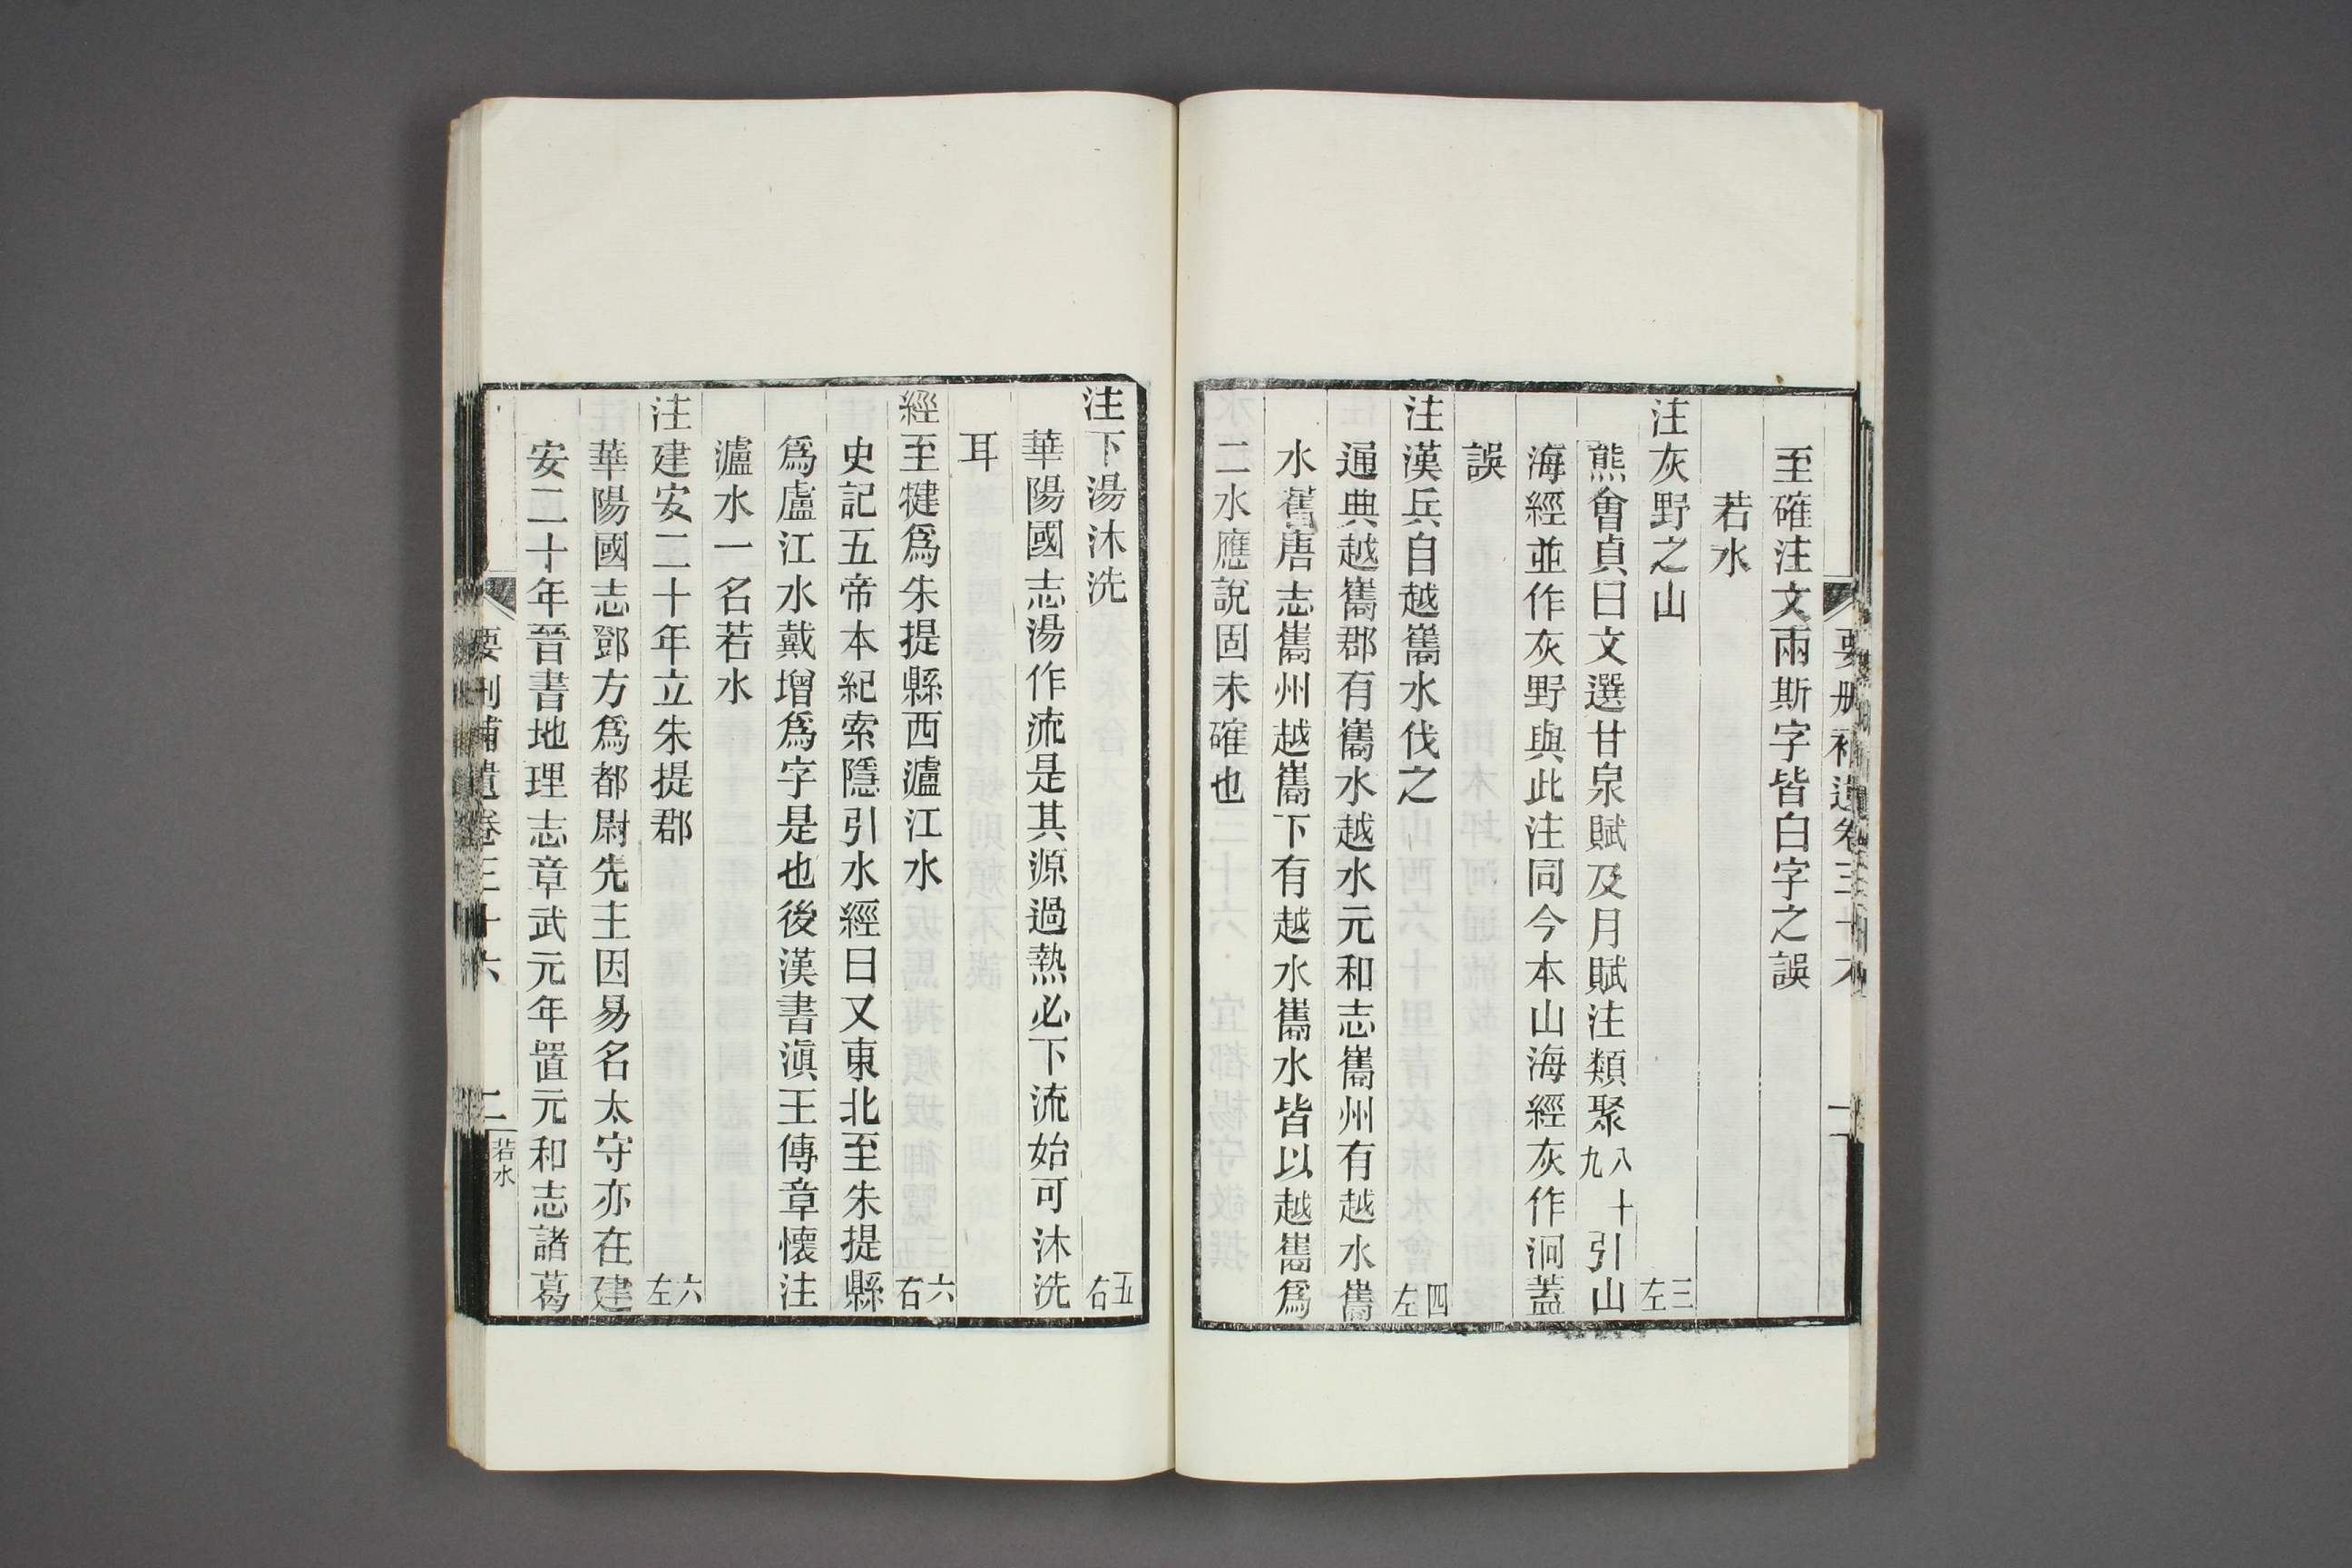 至確注文兩斯字皆白字之誤
若水
注灰野之山 三左
熊會貞曰文選甘泉賦及月賦注類聚八十九引山
海經並作灰野與此注同今本山海經灰作洞蓋
誤
注漢兵自越巂水伐之 四左
通典越巂郡有巂水越水元和志巂州有越水巂
水舊唐志巂州越巂下有越水巂水皆以越巂爲
二水應說固未確也
注下湯沐洗 五右
華陽國志湯作流是其源過熱必下流始可沐洗
耳
經至犍爲朱提縣西瀘江水 六右
史記五帝本紀索隱引水經曰又東北至朱提縣
爲盧江水戴增爲字是也後漢書滇王傳章懷注
瀘水一名若水
注建安二十年立朱提郡 六左
華陽國志鄧方爲都尉先主因易名太守亦在建
安二十年晉書地理志章武元年置元和志諸葛
要刪補遺卷三十六 二 若水